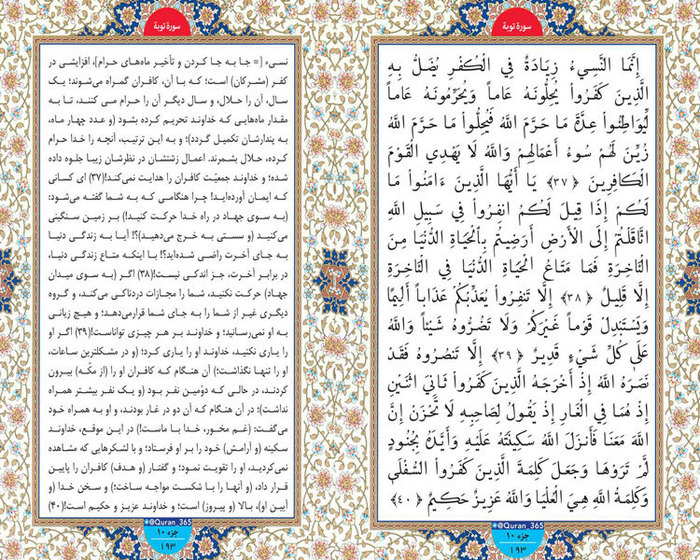 سورهٔ توبة
إِنَّمَا النَّسِيءُ زِيَادَةٌ فِي الْكُفْرِ يُضَلُّ بِهِ
الَّذِينَ كَفَرُواْ يُحِلُّونَهُ عَاماً وَيُحَرِّمُونَهُ عَاماً
لِّيُوَاطِئُواْ عِدَّةَ مَا حَرَّمَ اللَّهُ فَيُحِلُّواْ مَا حَرَّمَ اللَّهُ
زُيِّنَ لَهُمْ سُوءُ أَعْمَالِهِمْ وَاللَّهُ لَا يَهْدِي الْقَوْمَ
الْكَافِرِينَ ﴿٣٧﴾ يَا أَيُّهَا الَّذِينَ ءَامَنُواْ مَا
لَكُمْ إِذَا قِيلَ لَكُمُ انفِرُواْ فِي سَبِيلِ اللَّهِ
اثَّاقَلْتُمْ إِلَى الْأَرْضِ أَرَضِيتُم بِالْحَيَاةِ الدُّنْيَا مِنَ
الْآخِرَةِ فَمَا مَتَاعُ الْحَيَاةِ الدُّنْيَا فِي الْآخِرَةِ
إِلَّا قَلِيلٌ ﴿٣٨﴾ إِلَّا تَنفِرُواْ يُعَذِّبْكُمْ عَذَاباً أَلِيمًا
وَيَسْتَبْدِلْ قَوْماً غَيْرَكُمْ وَلَا تَضُرُّوهُ شَيْئاً وَاللَّهُ
عَلَى كُلِّ شَيْءٍ قَدِيرٌ ﴿٣٩﴾ إِلَّا تَنصُرُوهُ فَقَدْ
نَصَرَهُ اللَّهُ إِذْ أَخْرَجَهُ الَّذِينَ كَفَرُواْ ثَانِيَ اثْنَيْنِ
إِذْ هُمَا فِي الْغَارِ إِذْ يَقُولُ لِصَاحِبِهِ لَا تَحْزَنْ إِنَّ
اللَّهَ مَعَنَا فَأَنزَلَ اللَّهُ سَكِينَتَهُ عَلَيْهِ وَأَيَّدَهُ بِجُنُودٍ
لَّمْ تَرَوْهَا وَجَعَلَ كَلِمَةَ الَّذِينَ كَفَرُواْ السُّفْلَى
وَكَلِمَةُ اللَّهِ هِيَ الْعُلْيَا وَاللَّهُ عَزِيزٌ حَكِيمٌ ﴿٤٠﴾
@Quran_365
جزء ۱۰
۱۹۳
سورهٔ توبة
نسیء [= جا به جا کردن و تأخیر ماه‌های حرام]، افزایشی در
کفر (مشرکان) است؛ که با آن، کافران گمراه می‌شوند؛ یک
سال، آن را حلال، و سال دیگر آن را حرام می کنند، تا به
مقدار ماه‌هایی که خداوند تحریم کرده بشود (و عدد چهار ماه،
به پندارشان تکمیل گردد)؛ و به این ترتیب، آنچه را خدا حرام
کرده، حلال بشمرند. اعمال زشتشان در نظرشان زیبا جلوه داده
شده؛ و خداوند جمعیّت کافران را هدایت نمی‌کند!(۳۷) ای کسانی
که ایمان آورده‌اید! چرا هنگامی که به شما گفته می‌شود:
(به سوی جهاد در راه خدا حرکت کنید!) بر زمین سنگینی
می‌کنید (و سستی به خرج می‌دهید)؟! آیا به زندگی دنیا
به جای آخرت راضی شده‌اید؟! با اینکه متاع زندگی دنیا،
در برابر آخرت، جز اندکی نیست!(۳۸) اگر (به سوی میدان
جهاد) حرکت نکنید، شما را مجازات دردناکی می‌کند، و گروه
دیگری غیر از شما را به جای شما قرارمی‌دهد؛ و هیچ زیانی
به او نمی‌رسانید؛ و خداوند بر هر چیزی تواناست!(۳۹) اگر او
را یاری نکنید، خداوند او را یاری کرد؛ (و در مشکلترین ساعات،
او را تنها نگذاشت؛) آن هنگام که کافران او را (از مکّه) بیرون
کردند، در حالی که دوّمین نفر بود (و یک نفر بیشتر همراه
نداشت)؛ در آن هنگام که آن دو در غار بودند، و او به همراه خود
می‌گفت: (غم مخور، خدا با ماست!) در این موقع، خداوند
سکینه (و آرامش) خود را بر او فرستاد؛ و با لشکرهایی که مشاهده
نمی‌کردید، او را تقویت نمود؛ و گفتار (و هدف) کافران را پایین
قرار داد، (و آنها را با شکست مواجه ساخت؛) و سخن خدا (و
آیین او)، بالا (و پیروز) است؛ و خداوند عزیز و حکیم است!(۴۰)
@Quran_365
جزء ۱۰
۱۹۳